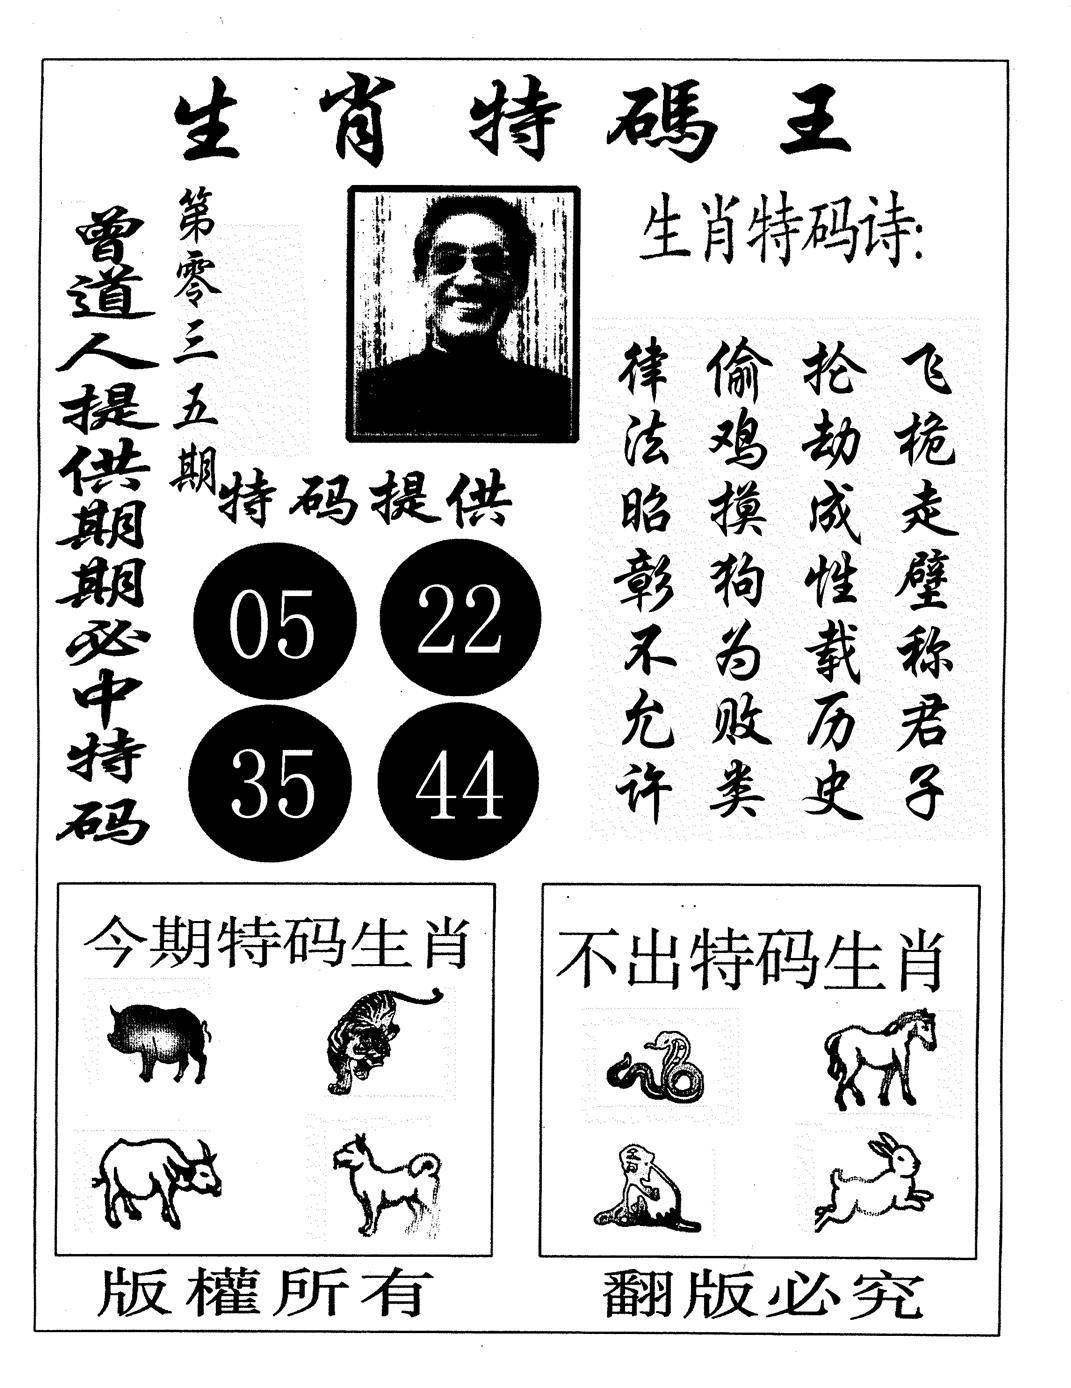 生肖特碼王
曾道人提供期期必中特码
第零三五期
生肖特码诗:
飞桅走壁称君子
抡劫成性载历史
偷鸡摸狗为败类
律法昭彰不允许
特码提供
05 22
35 44
今期特码生肖
不出特码生肖
版權所有
翻版必究